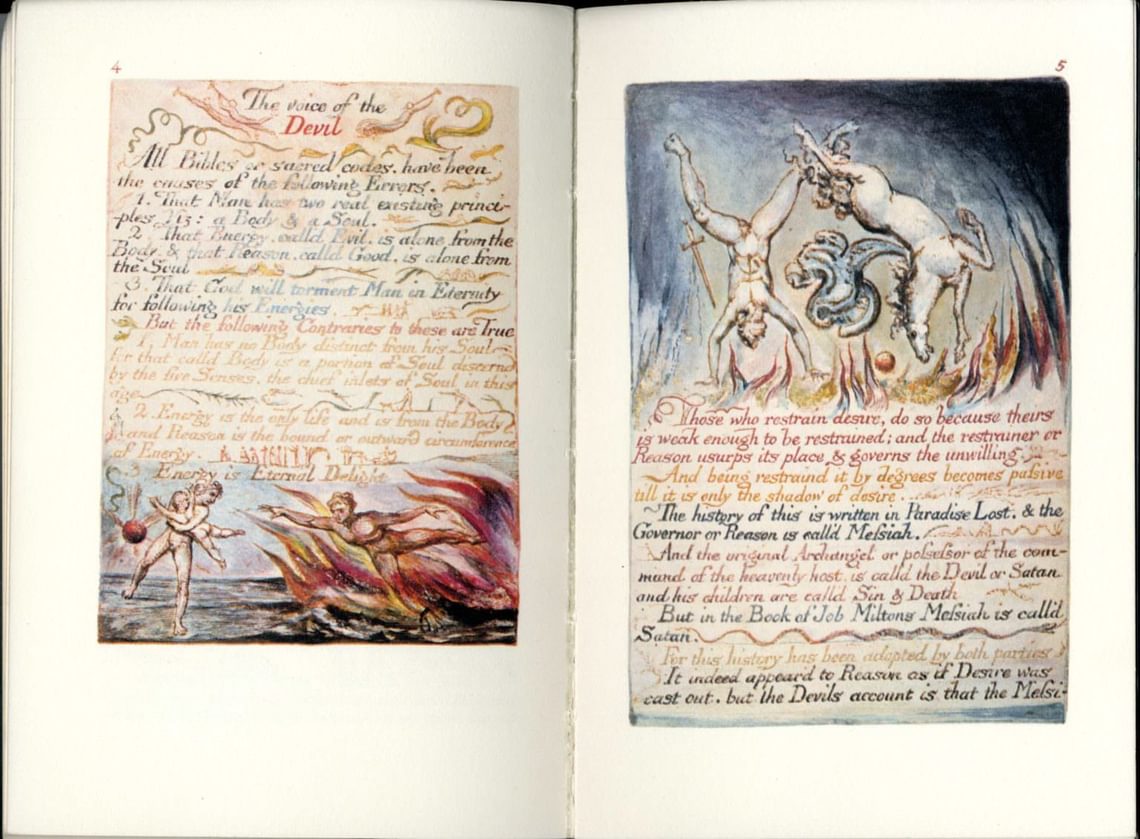 4
The voice of the
Devil
All Bibles or sacred codes. have been
the causes of the following Errors.
1. That Man has two real existing princi-
ples Viz: a Body & a Soul.
2. That Energy. calld Evil. is alone from the
Body. & that Reason. calld Good. is alone from
the Soul
3. That God will torment Man in Eternity
for following his Energies.
But the following Contraries to these are True
1. Man has no Body distinct from his Soul
for that calld Body is a portion of Soul discernd
by the five Senses. the chief inlets of Soul in this
age
2. Energy is the only life and is from the Body
and Reason is the bound or outward circumference
of Energy.
3 Energy is Eternal Delight
5
Those who restrain desire, do so because theirs
is weak enough to be restrained; and the restrainer or
Reason usurps its place & governs the unwilling.
And being restraind it by degrees becomes passive
till it is only the shadow of desire.
The history of this is written in Paradise Lost. & the
Governor or Reason is call'd Messiah.
And the original Archangel or possessor of the com-
mand of the heavenly host. is calld the Devil or Satan
and his children are call'd Sin & Death
But in the Book of Job Miltons Messiah is call'd
Satan.
For this history has been adopted by both parties
It indeed appear'd to Reason as if Desire was
cast out. but the Devils account is that the Messi-